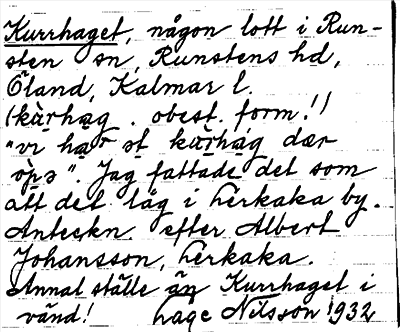 Kurrhaget, någon lott i Run-
sten sn, Runstens hd,
Öland, Kalmar l.
(kàrhag . obest. form!)
"vi har et kàrhag dær
òpə". Jag fattade det som
att det låg i Lerkaka by.
Anteckn. efter Albert
Johansson, Lerkaka.
Annat ställe än Kurrhaget i
vänd! Lage Nilsson 1932